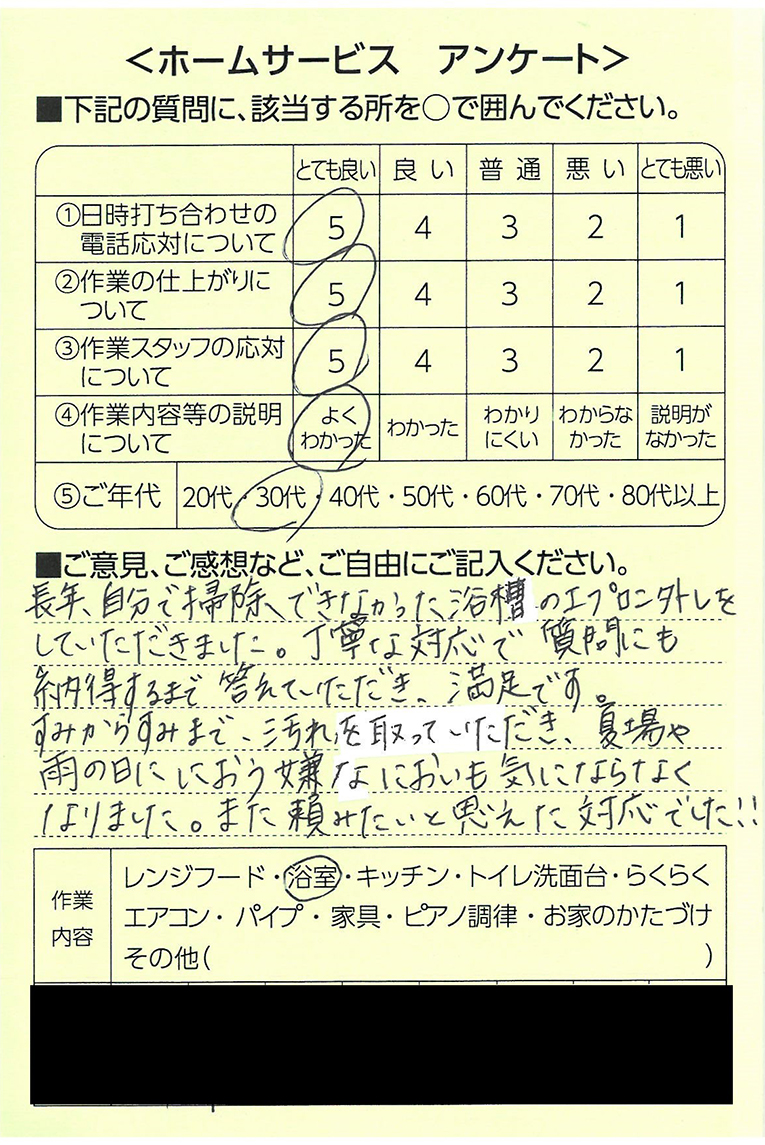 ＜ホームサービス　アンケート＞
■下記の質問に、該当する所を○で囲んでください。
とても良い 良い 普通 悪い とても悪い
①日時打ち合わせの
電話応対について 5 4 3 2 1
②作業の仕上がりに
ついて 5 4 3 2 1
③作業スタッフの応対
について 5 4 3 2 1
④作業内容等の説明 よく わかった わかり わからな 説明が
について わかった にくい かった なかった
⑤ご年代 20代・30代・40代・50代・60代・70代・80代以上
■ご意見、ご感想など、ご自由にご記入ください。
長年、自分で掃除できなかった浴槽のエプロン外しを
していただきました。丁寧な対応で質問にも
納得するまで答えていただき、満足です。
すみからすみまで、汚れを取っていただき、夏場や
雨の日ににおう嫌なにおいも気にならなく
なりました。また頼みたいと思えた対応でした!!
作業
内容
レンジフード・浴室・キッチン・トイレ洗面台・らくらく
エアコン・パイプ・家具・ピアノ調律・お家のかたづけ
その他(　)